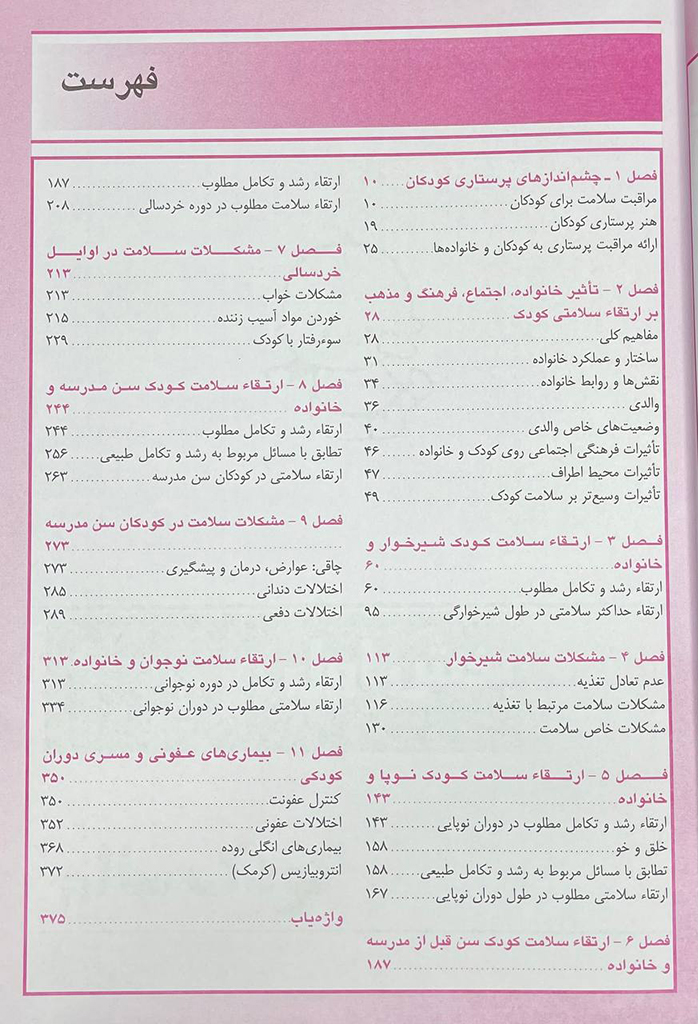 فهرست
فصل ۱ - چشم‌اندازهای پرستاری کودکان ..... ۱۰
مراقبت سلامت برای کودکان ..... ۱۰
هنر پرستاری کودکان ..... ۱۹
ارائه مراقبت پرستاری به کودکان و خانواده‌ها ..... ۲۵
فصل ۲ - تأثیر خانواده، اجتماع، فرهنگ و مذهب
بر ارتقاء سلامتی کودک ..... ۲۸
مفاهیم کلی ..... ۲۸
ساختار و عملکرد خانواده ..... ۳۱
نقش‌ها و روابط خانواده ..... ۳۴
والدی ..... ۳۶
وضعیت‌های خاص والدی ..... ۴۰
تأثیرات فرهنگی اجتماعی روی کودک و خانواده ..... ۴۶
تأثیرات محیط اطراف ..... ۴۷
تأثیرات وسیع‌تر بر سلامت کودک ..... ۴۹
فصل ۳ - ارتقاء سلامت کودک شیرخوار و
خانواده ..... ۶۰
ارتقاء رشد و تکامل مطلوب ..... ۶۰
ارتقاء حداکثر سلامتی در طول شیرخوارگی ..... ۹۵
فصل ۴ - مشکلات سلامت شیرخوار ..... ۱۱۳
عدم تعادل تغذیه ..... ۱۱۳
مشکلات سلامت مرتبط با تغذیه ..... ۱۱۶
مشکلات خاص سلامت ..... ۱۳۰
فصل ۵ - ارتقاء سلامت کودک نوپا و
خانواده ..... ۱۴۳
ارتقاء رشد و تکامل مطلوب در دوران نوپایی ..... ۱۴۳
خلق و خو ..... ۱۵۸
تطابق با مسائل مربوط به رشد و تکامل طبیعی ..... ۱۵۸
ارتقاء سلامتی مطلوب در طول دوران نوپایی ..... ۱۶۷
فصل ۶ - ارتقاء سلامت کودک سن قبل از مدرسه
و خانواده ..... ۱۸۷
ارتقاء رشد و تکامل مطلوب ..... ۱۸۷
ارتقاء سلامت مطلوب در دوره خردسالی ..... ۲۰۸
فصل ۷ - مشکلات سلامت در اوایل
خردسالی ..... ۲۱۳
مشکلات خواب ..... ۲۱۳
خوردن مواد آسیب زننده ..... ۲۱۵
سوءرفتار با کودک ..... ۲۲۹
فصل ۸ - ارتقاء سلامت کودک سن مدرسه و
خانواده ..... ۲۴۴
ارتقاء رشد و تکامل مطلوب ..... ۲۴۴
تطابق با مسائل مربوط به رشد و تکامل طبیعی ..... ۲۵۶
ارتقاء سلامتی در کودکان سن مدرسه ..... ۲۶۳
فصل ۹ - مشکلات سلامت در کودکان سن مدرسه
..... ۲۷۳
چاقی: عوارض، درمان و پیشگیری ..... ۲۷۳
اختلالات دندانی ..... ۲۸۵
اختلالات دفعی ..... ۲۸۹
فصل ۱۰ - ارتقاء سلامت نوجوان و خانواده . ۳۱۳
ارتقاء رشد و تکامل در دوره نوجوانی ..... ۳۱۳
ارتقاء سلامتی مطلوب در دوران نوجوانی ..... ۳۳۴
فصل ۱۱ - بیماری‌های عفونی و مسری دوران
کودکی ..... ۳۵۰
کنترل عفونت ..... ۳۵۰
اختلالات عفونی ..... ۳۵۲
بیماری‌های انگلی روده ..... ۳۶۸
انتروبیازیس (کرمک) ..... ۳۷۲
واژه‌یاب ..... ۳۷۵